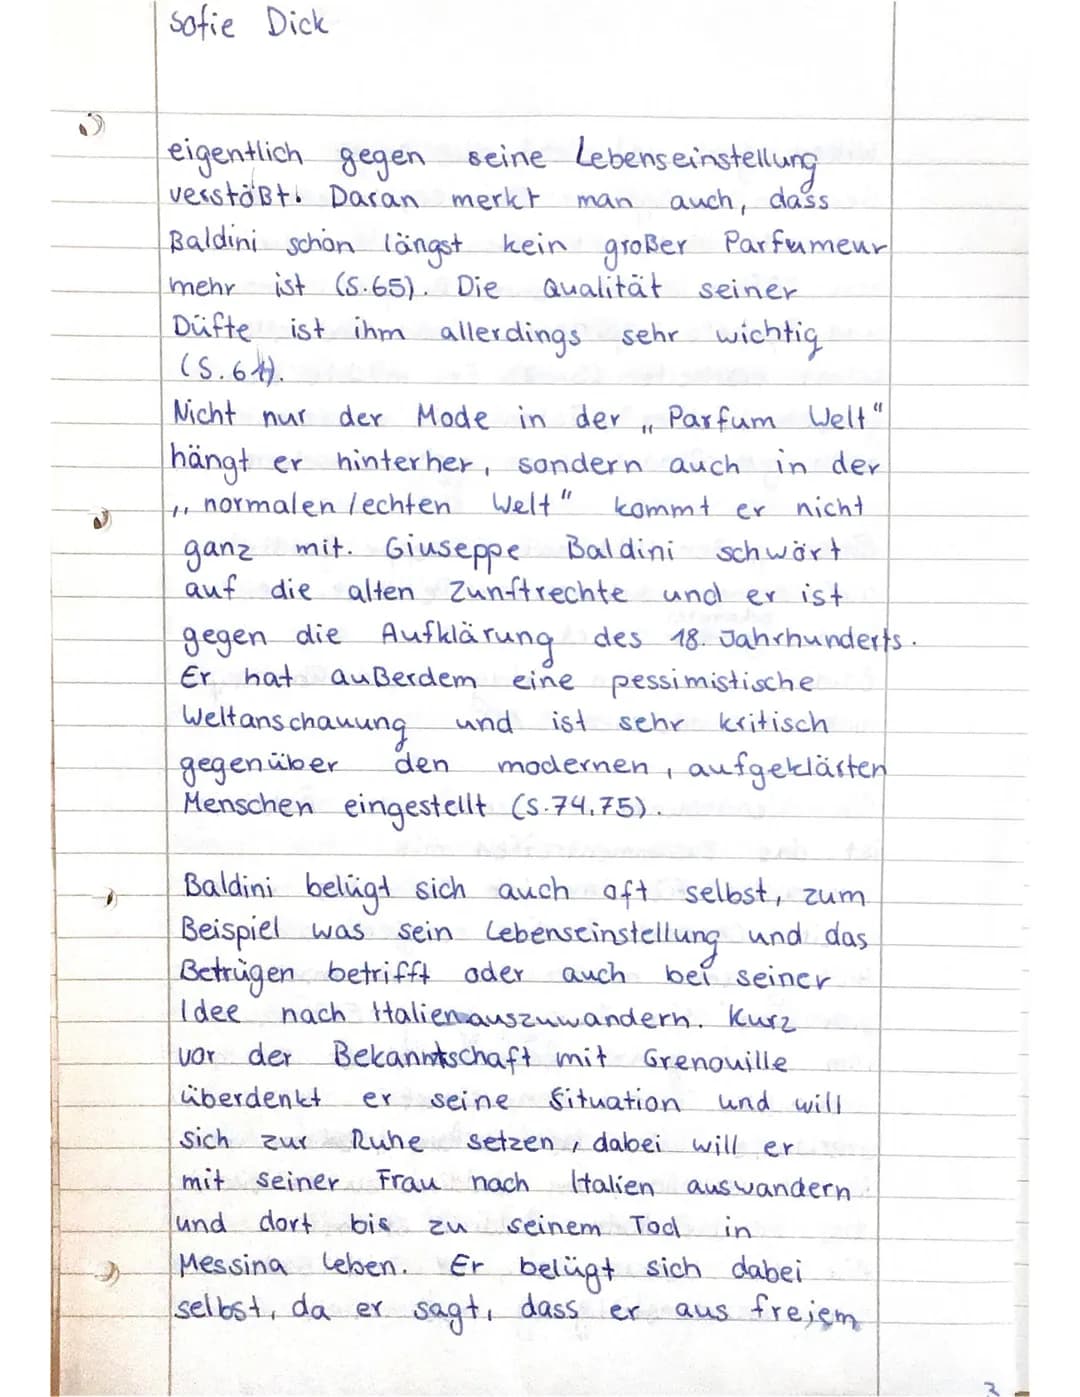 Sofie Dick
eigentlich gegen seine Lebenseinstellung
verstößt. Daran merkt man auch, dass
Baldini schon längst kein großer Parfumeur
mehr ist (S.65). Die Qualität seiner
Düfte ist ihm allerdings sehr wichtig
(S.61).
Nicht nur der Mode in der „Parfum Welt"
hängt er hinterher, sondern auch in der
„normalen/echten Welt" kommt er nicht
ganz mit. Giuseppe Baldini schwört
auf die alten Zunftrechte und er ist
gegen die Aufklärung des 18. Jahrhunderts.
Er hat außerdem eine pessimistische
Weltanschauung und ist sehr kritisch
gegenüber den modernen, aufgeklärten
Menschen eingestellt (S.74,75).
Baldini belügt sich auch oft selbst, zum
Beispiel was sein Lebenseinstellung und das
Betrügen betrifft oder auch bei seiner
Idee nach Italien auszuwandern. Kurz
vor der Bekanntschaft mit Grenouille
überdenkt er seine Situation und will
sich zur Ruhe setzen, dabei will er
mit seiner Frau nach Italien auswandern
und dort bis zu seinem Tod in
Messina leben. Er belügt sich dabei
selbst, da er sagt, dass er aus freiem
3